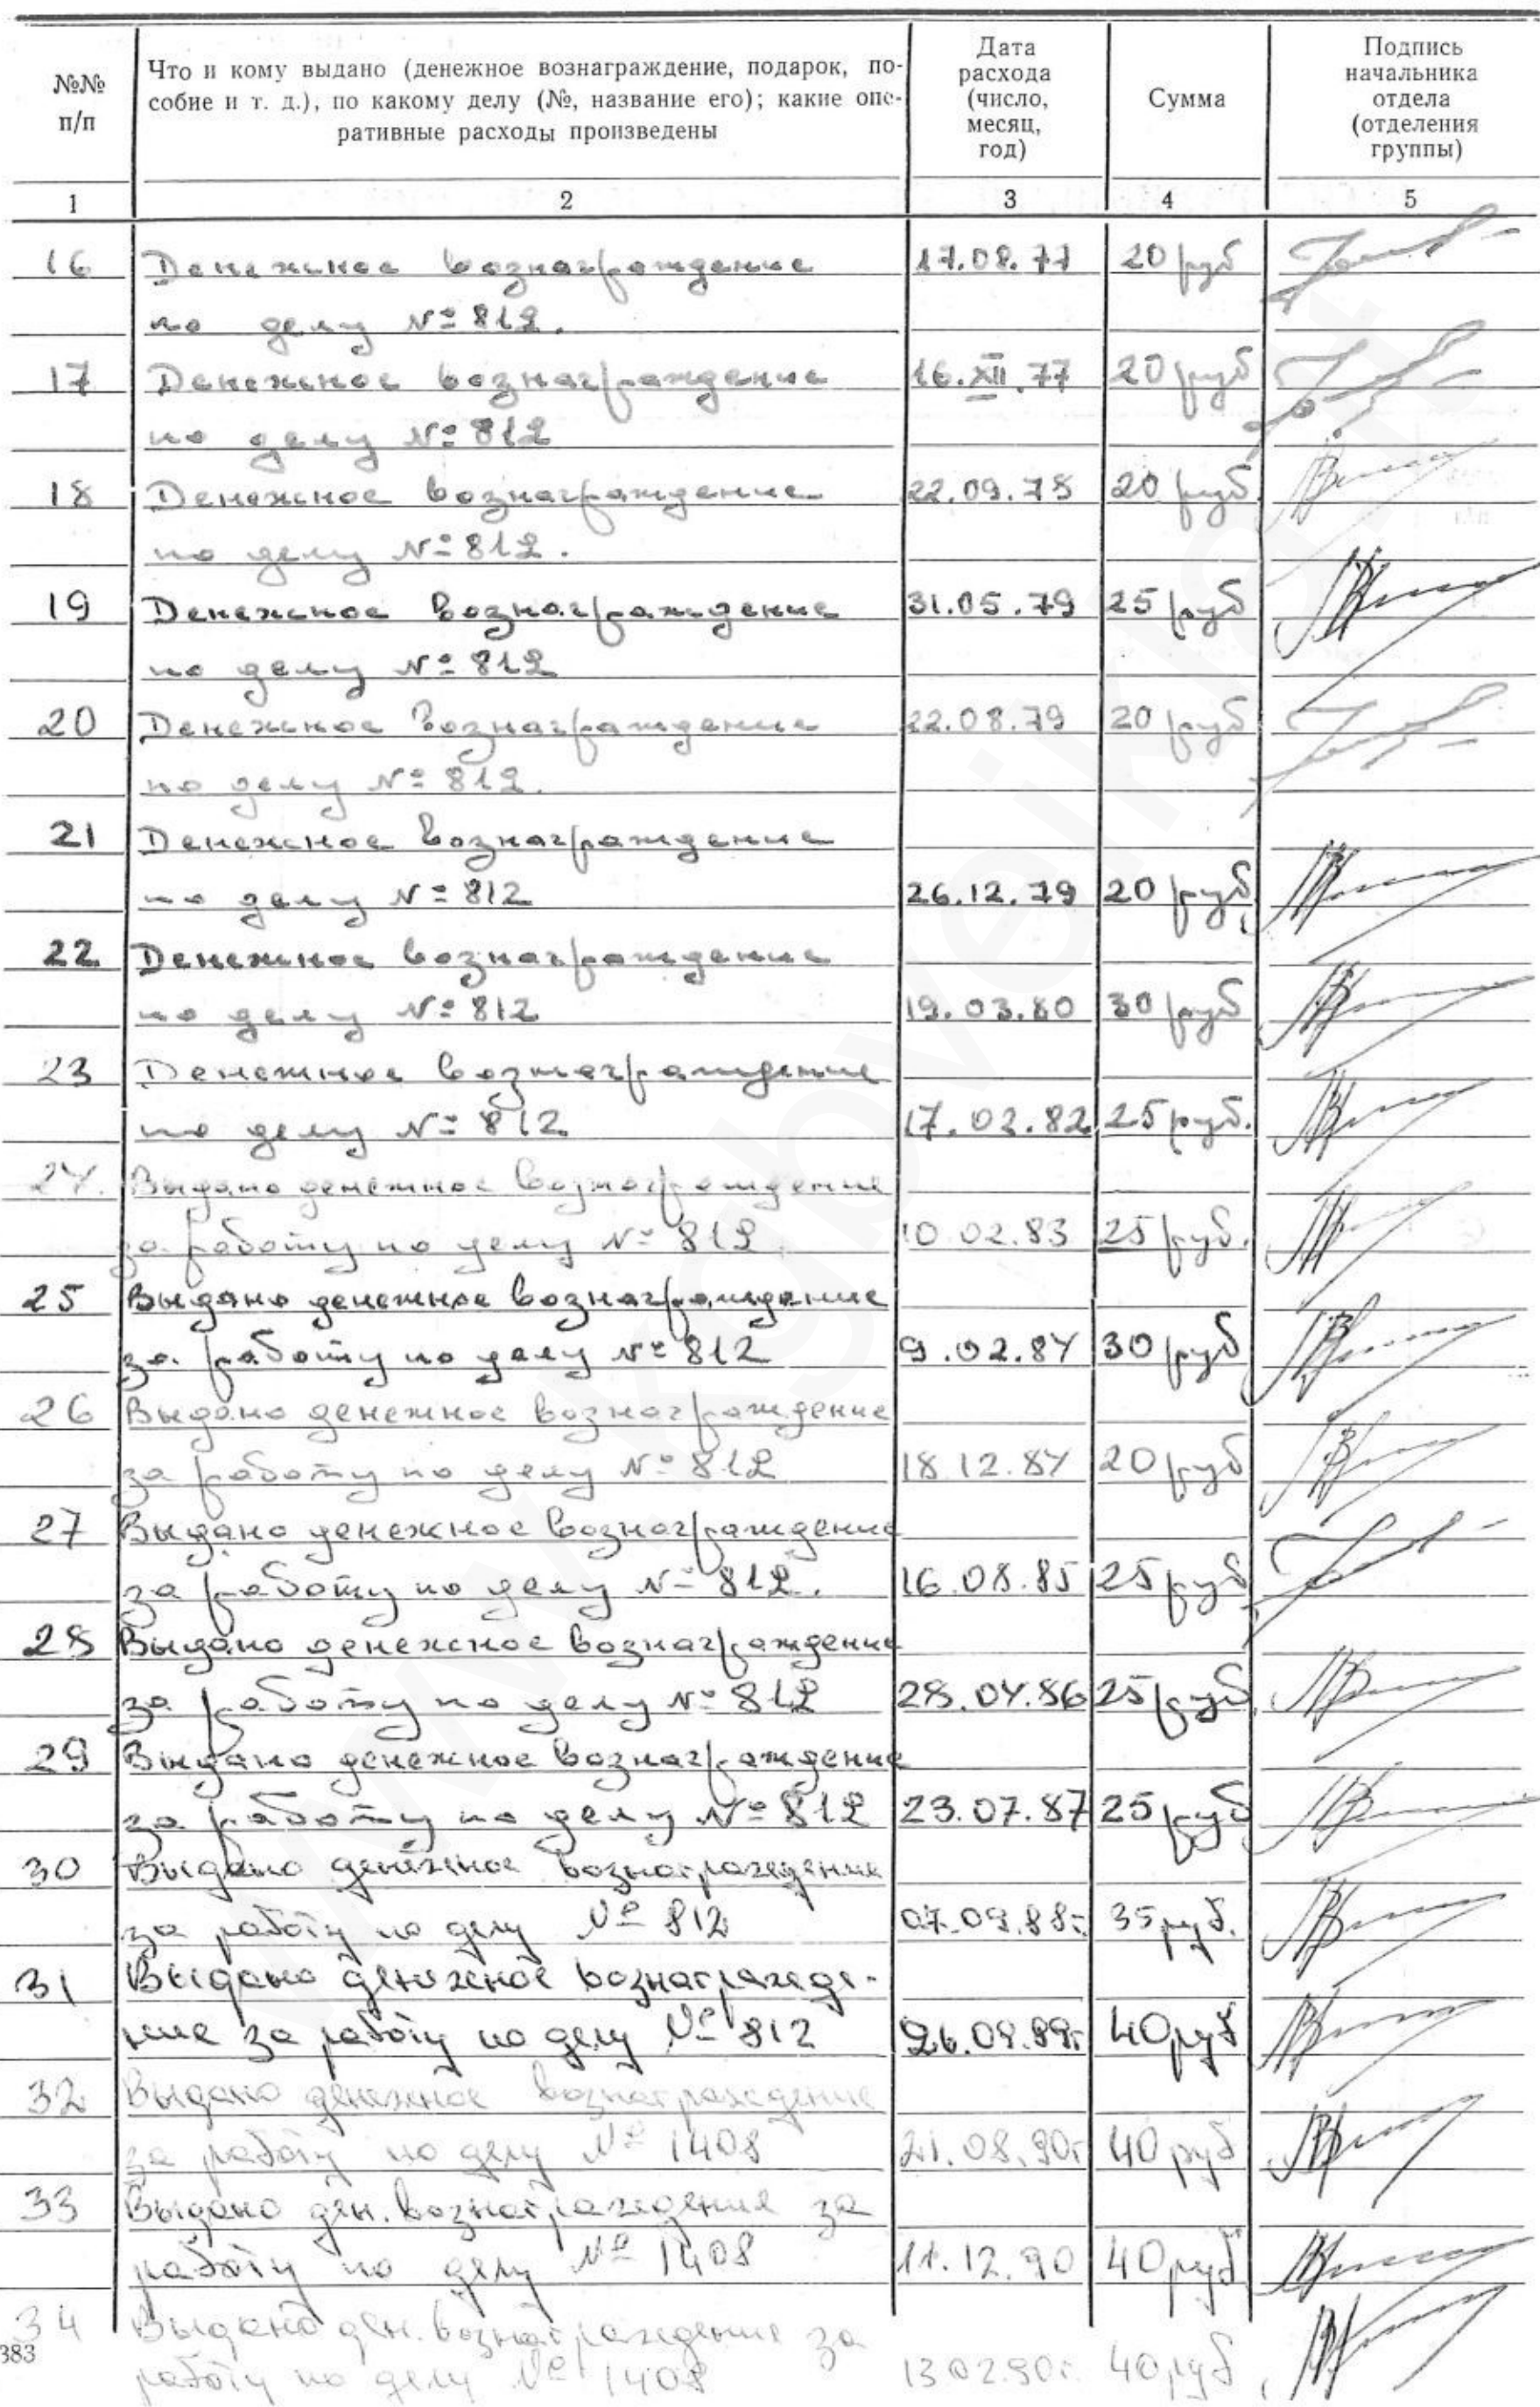 №№ п/п
Что и кому выдано (денежное вознаграждение, подарок, по-
собие и т. д.), по какому делу (№, название его); какие опе-
ративные расходы произведены
Дата расхода (число, месяц, год)
Сумма
Подпись начальника отдела (отделения группы)
1 2 3 4 5
16 Денежное вознаграждение 17.08.77 20 руб
по делу № 812.
17 Денежное вознаграждение 16.XII.77 20 руб
по делу № 812
18 Денежное вознаграждение 22.09.78 20 руб.
по делу № 812.
19 Денежное вознаграждение 31.05.79 25 руб
по делу № 812
20 Денежное вознаграждение 22.08.79 20 руб
по делу № 812.
21 Денежное вознаграждение
по делу № 812 26.12.79 20 руб.
22 Денежное вознаграждение
по делу № 812 19.03.80 30 руб
23 Денежное вознаграждение
по делу № 812 17.02.82 25 руб.
24. Выдано денежное вознаграждение
за работу по делу № 812. 10.02.83 25 руб.
25 Выдано денежное вознаграждение
за работу по делу № 812 9.02.84 30 руб
26 Выдано денежное вознаграждение
за работу по делу № 812 18.12.84 20 руб
27 Выдано денежное вознаграждение
за работу по делу № 812. 16.08.85 25 руб
28 Выдано денежное вознаграждение
за работу по делу № 812 28.04.86 25 руб.
29 Выдано денежное вознаграждение
за работу по делу № 812 23.07.87 25 руб
30 Выдано денежное вознаграждение
за работу по делу № 812 07.09.88г 35 руб.
31 Выдано денежное вознагражде-
ние за работу по делу № 812 26.09.89г 40 руб
32 Выдано денежное вознаграждение
за работу по делу № 1408 21.08.90г 40 руб
33 Выдано ден. вознаграждение за
работу по делу № 1408 11.12.90 40 руб
34 Выдано ден. вознаграждение за
383
работу по делу № 1408 13.02.90г. 40 руб.